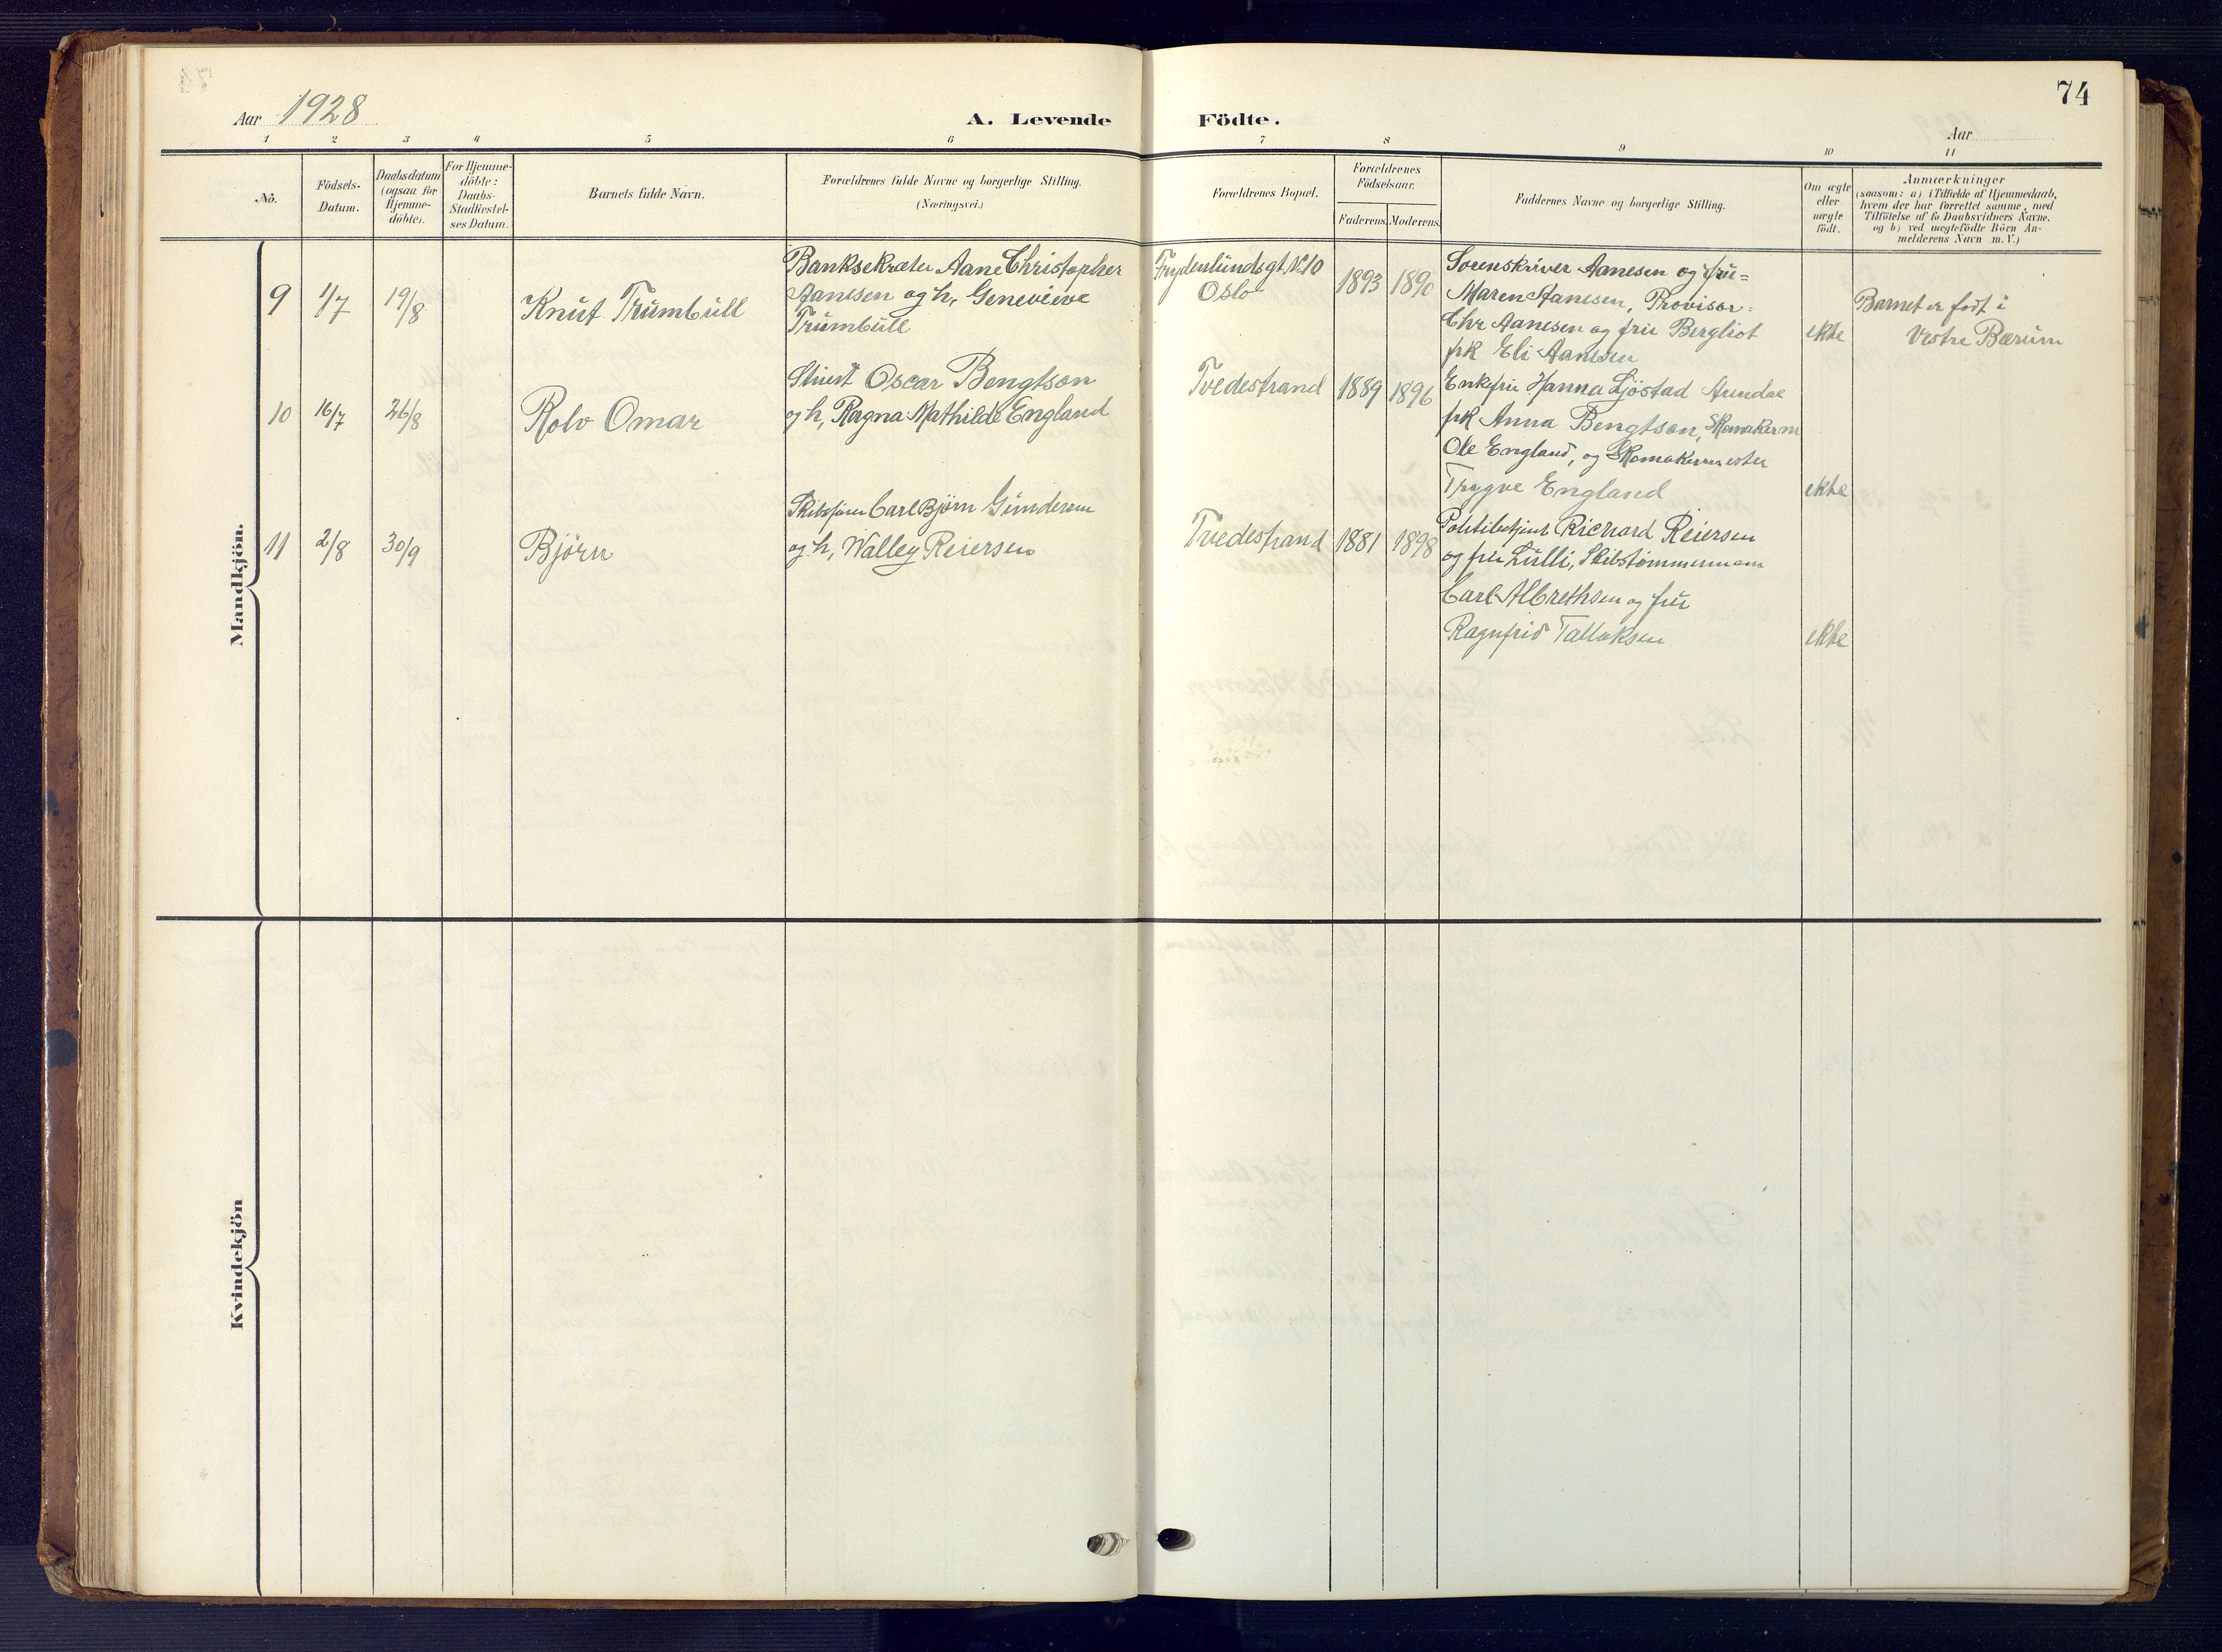 74
Aar 1928
A. Levende Födte.
Aar
1 2 3 4 5 6 7 8 9 10 11
No.
Födsels-
Datum.
Daabsdatum
(ogsaa for
Hjemme-
döbte).
For Hjemme-
döbte:
Daabs-
Stadfæstel-
ses Datum.
Barnets fulde Navn.
Forældrenes fulde Navne og borgerlige Stilling.
(Næringsvei.)
Forældrenes Bopæl.
Forældrenes
Födselsaar.
Faderens. Moderens.
Faddernes Navne og borgerlige Stilling.
Om ægte
eller
uægte
födt.
Anmærkninger
(saasom: a) i Tilfælde af Hjemmedaab,
hvem der har forrettet samme, med
Tilföielse af to Daabsvidners Navne.
og b) ved uægtefödte Börn An-
melderens Navn m. V.)
Mandkjön.
9 1/7 19/8
Knut Trumbull
Banksekretær Aane Christopher
Aanesen og h, Genevieve
Trumbull
Frydenlundsgt. No 10
Oslo
1893 1890
Sorenskriver Aanesen og fru
Maren Aanesen, Provisor
Chr Aanesen og fru Bergliot
frk Eli Aanesen
ekte
Barnet er født i
Vestre Bærum
10 16/7 26/8
Rolv Omar
Stuert Oscar Bengtson
og h, Ragna Mathilde England
Tvedestrand
1889 1896
Enkefru Hanna Ljöstad Arendal
frk Anna Bengtson, Skomakerm
Ole England, og Skomakermester
Trygve England
ekte
11 2/8 30/9
Björn
Skibsfører Carl Bjørn Gundersen
og h, Walley Reiersen
Tvedestrand
1881 1898
Politibetjent Richard Reiersen
og fru Lulli, Skibstømmermann
Carl Albrethsen og fru
Ragnfrid Tallaksen
ekte
Kvindekjön